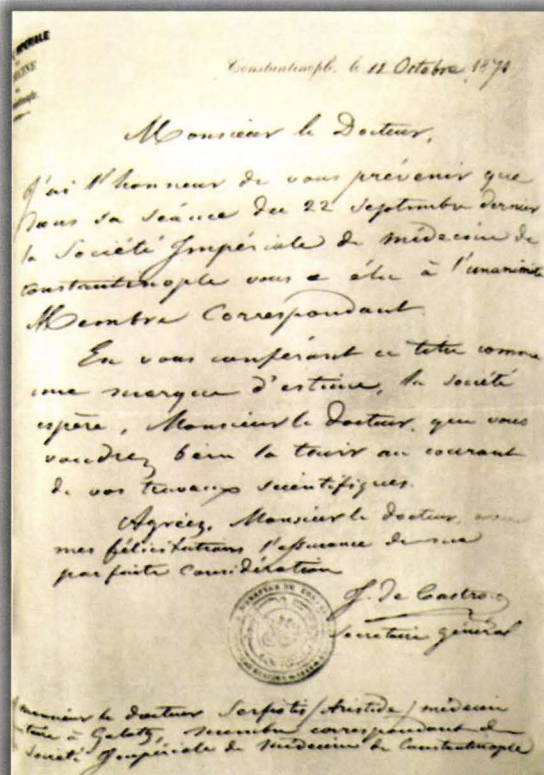 IMPERIALE
DE
MEDECINE
DE
Constantinople, le 12 Octobre 1871
Monsieur le Docteur,
J'ai l'honneur de vous prévenir que
dans sa séance du 22 Septembre dernier
la Société Impériale de médecine de
Constantinople vous a élu à l'unanimité
Membre Correspondant.
En vous conférant ce titre comme
une marque d'estime, la société
espère, Monsieur le docteur, que vous
voudrez bien la tenir au courant
de vos travaux scientifiques.
Agréez, Monsieur le docteur, avec
mes félicitations l'assurance de ma
parfaite considération
J. de Castro
Secrétaire général
monsieur le docteur Serfiotis (Aristide) médecin
à Galatz, membre correspondant de
Société Impériale de Médecine de Constantinople